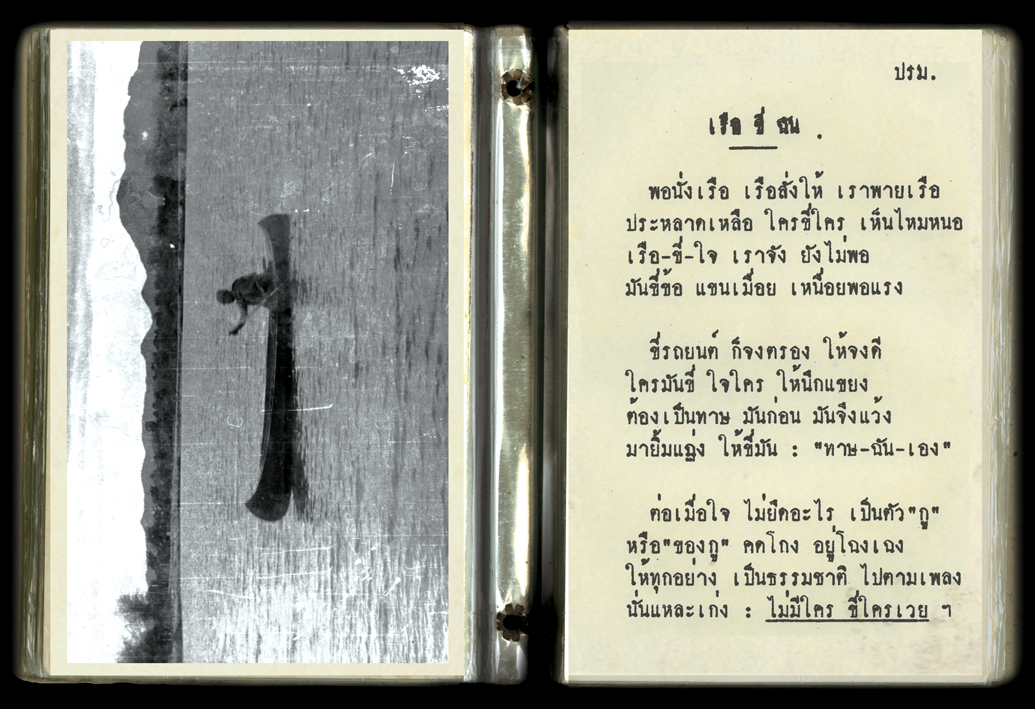 ปรม.
เรือ ขี่ ฉัน .
พอนั่งเรือ เรือสั่งให้ เราพายเรือ
ประหลาดเหลือ ใครขี่ใคร เห็นไหมหนอ
เรือ-ขี่-ใจ เราจัง ยังไม่พอ
มันขี่ข้อ แขนเมื่อย เหนื่อยพอแรง
ขี่รถยนต์ ก็จงตรอง ให้จงดี
ใครมันขี่ ใจใคร ให้นึกแขยง
ต้องเป็นทาษ มันก่อน มันจึงแว้ง
มายิ้มแฉ่ง ให้ขี่มัน : "ทาษ-ฉัน-เอง"
ต่อเมื่อใจ ไม่ยึดอะไร เป็นตัว"กู"
หรือ"ของกู" คดโกง อยู่โฉงเฉง
ให้ทุกอย่าง เป็นธรรมชาติ ไปตามเพลง
นั่นแหละเก่ง : ไม่มีใคร ขี่ใครเวย ฯ